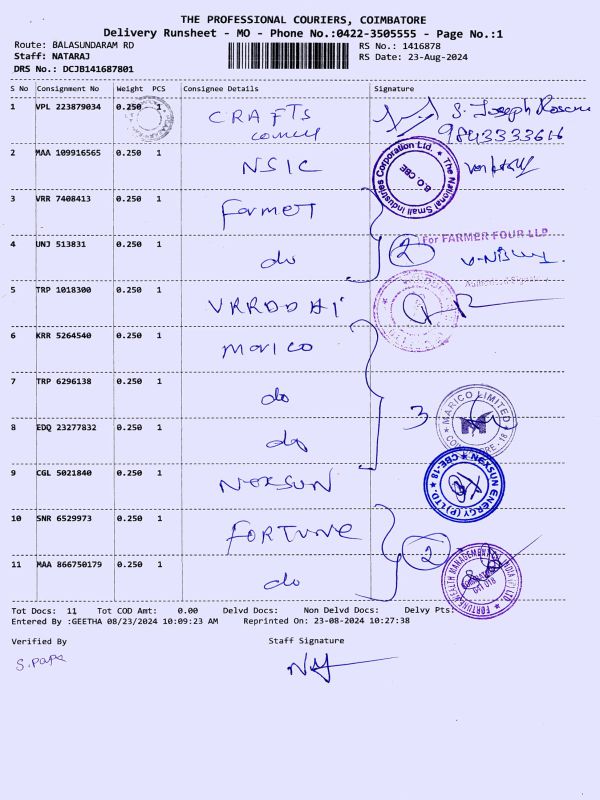 THE PROFESSIONAL COURIERS, COIMBATORE
Delivery Runsheet - MO - Phone No.:0422-3505555 - Page No.:1
Route: BALASUNDARAM RD
RS No.: 1416878
Staff: NATARAJ
RS Date: 23-Aug-2024
DRS No.: DCJB141687801
S No Consignment No Weight PCS Consignee Details Signature
1 VPL 223879034 0.250 1 CRAFTS S. Joseph
9843333616
2 MAA 109916565 0.250 1 NSIC
The National Small Industries Corporation Ltd. B.O. CBE
3 VRR 7408413 0.250 1 Farmer
4 UNJ 513831 0.250 1 do 2
For FARMER FOUR LLP
5 TRP 1018300 0.250 1 VRRDDHI
6 KRR 5264540 0.250 1 marico
7 TRP 6296138 0.250 1 do
3 MARICO LIMITED
8 EDQ 23277832 0.250 1 do
9 CGL 5021840 0.250 1 NEXSUN
NEXSUN ENERGY (P) LTD. CBE-18
10 SNR 6529973 0.250 1 FORTUNE
2
11 MAA 866750179 0.250 1 do
Tot Docs: 11 Tot COD Amt: 0.00 Delvd Docs: Non Delvd Docs: Delvy Pts:
Entered By :GEETHA 08/23/2024 10:09:23 AM Reprinted On: 23-08-2024 10:27:38
Verified By Staff Signature
S. papa